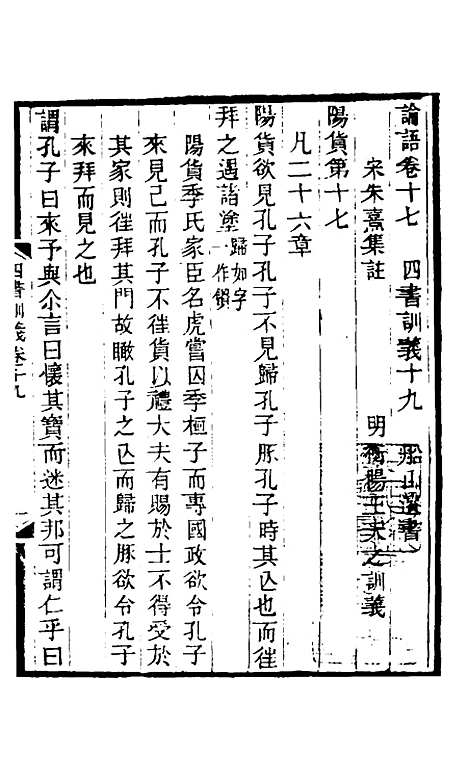 論語卷十七　四書訓義十九　船山遺書
宋朱熹集註　明衡陽王夫之訓義
陽貨第十七
凡二十六章
陽貨欲見孔子孔子不見歸孔子豚孔子時其亾也而徃
拜之遇諸塗歸如字一作饋
陽貨季氏家臣名虎嘗囚季桓子而專國政欲令孔子
來見己而孔子不徃貨以禮大夫有賜於士不得受於
其家則徃拜其門故瞰孔子之亾而歸之豚欲令孔子
來拜而見之也
謂孔子曰來予與尒言曰懷其寶而迷其邦可謂仁乎曰
四書訓義卷十九　一